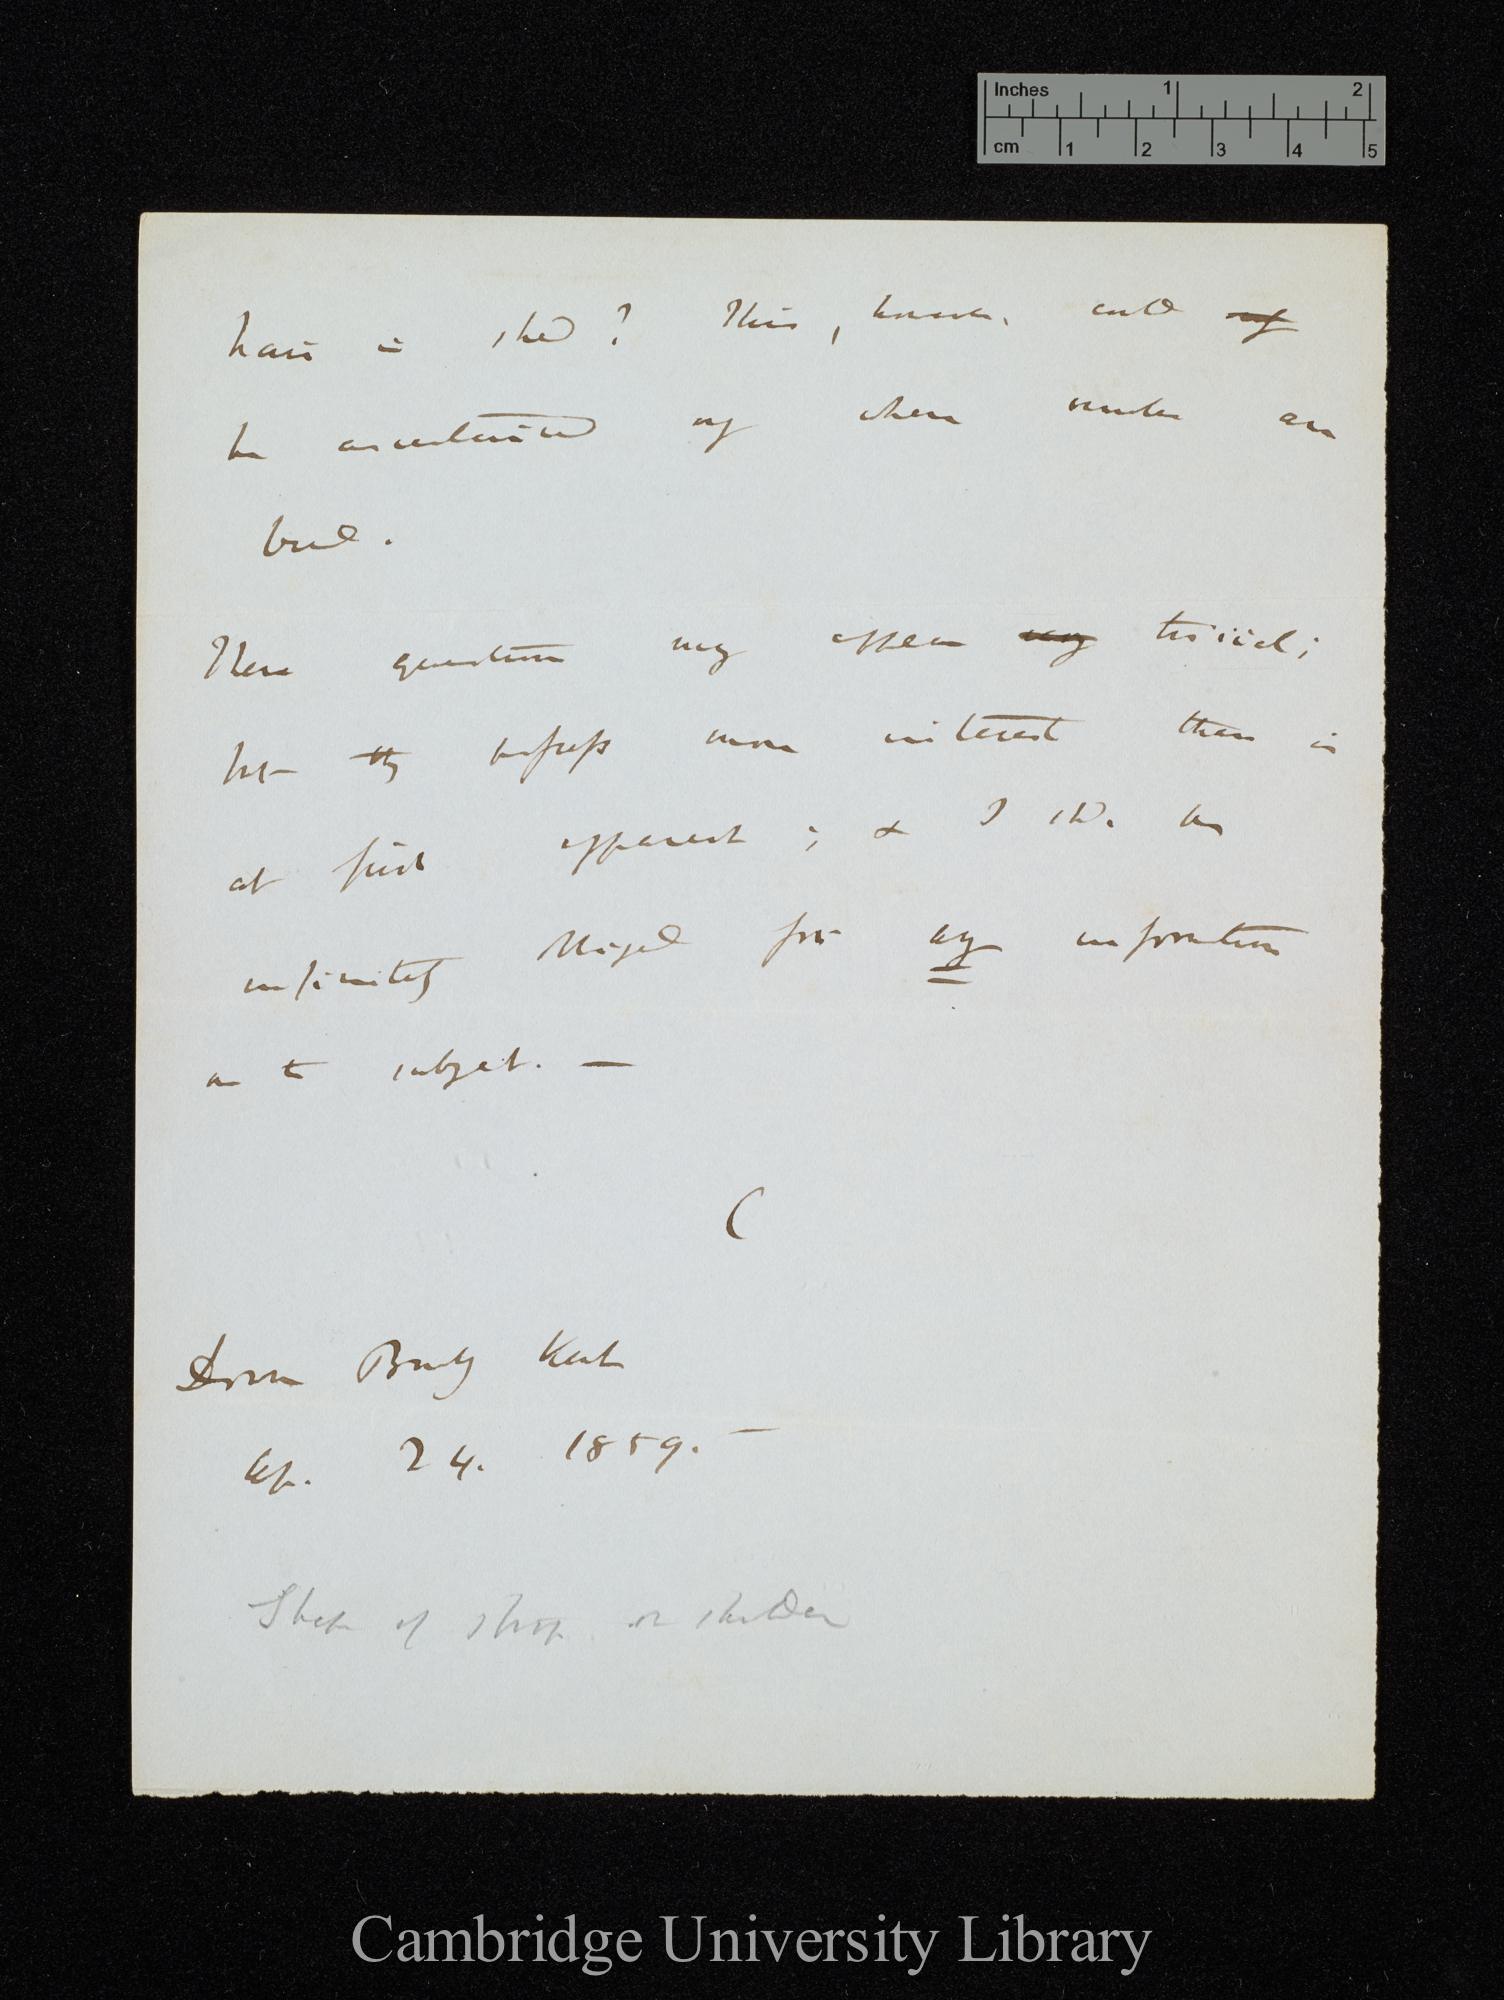 Inches 1 2
cm 1 2 3 4 5
hair is shed? This, however, could only
be ascertained only where number are
bred.
These questions may appear very trivial;
but they possess more interest than is
at first apparent; & I shd. be
infinitely obliged for any information
on the subject. —
C
Down Bromley Kent
Ap. 24. 1859. —
Shape of stripe on shoulder
Cambridge University Library